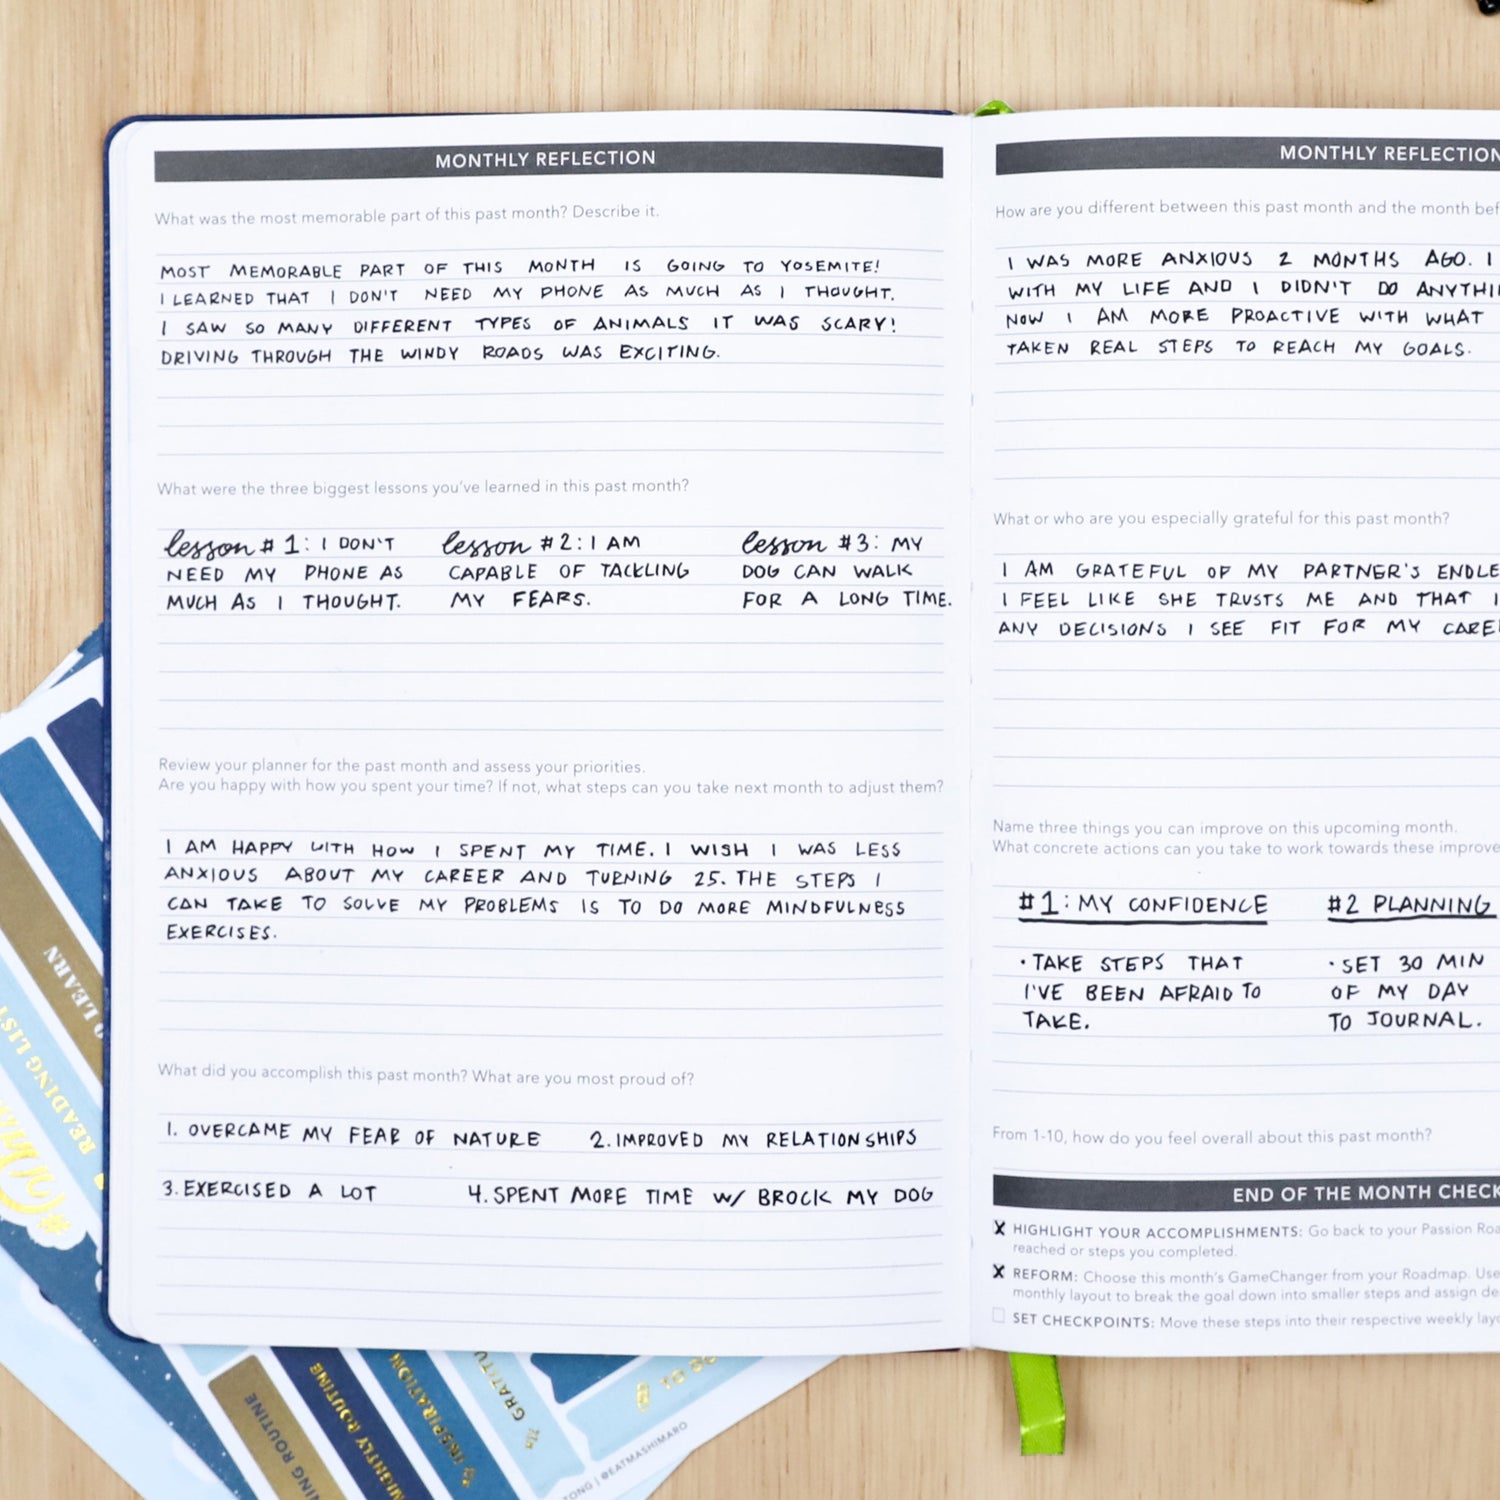 MONTHLY REFLECTION
What was the most memorable part of this past month? Describe it.
MOST MEMORABLE PART OF THIS MONTH IS GOING TO YOSEMITE!
I LEARNED THAT I DON'T NEED MY PHONE AS MUCH AS I THOUGHT.
I SAW SO MANY DIFFERENT TYPES OF ANIMALS IT WAS SCARY!
DRIVING THROUGH THE WINDY ROADS WAS EXCITING.
What were the three biggest lessons you've learned in this past month?
lesson #1: I DON'T
NEED MY PHONE AS
MUCH AS I THOUGHT.
lesson #2: I AM
CAPABLE OF TACKLING
MY FEARS.
lesson #3: MY
DOG CAN WALK
FOR A LONG TIME.
Review your planner for the past month and assess your priorities.
Are you happy with how you spent your time? If not, what steps can you take next month to adjust them?
I AM HAPPY WITH HOW I SPENT MY TIME. I WISH I WAS LESS
ANXIOUS ABOUT MY CAREER AND TURNING 25. THE STEPS I
CAN TAKE TO SOLVE MY PROBLEMS IS TO DO MORE MINDFULNESS
EXERCISES.
What did you accomplish this past month? What are you most proud of?
1. OVERCAME MY FEAR OF NATURE
2. IMPROVED MY RELATIONSHIPS
3. EXERCISED A LOT
4. SPENT MORE TIME W/ BROCK MY DOG
MONTHLY REFLECTION
How are you different between this past month and the month
I WAS MORE ANXIOUS 2 MONTHS AGO. I
WITH MY LIFE AND I DIDN'T DO
NOW I AM MORE PROACTIVE WITH WHAT
TAKEN REAL STEPS TO REACH MY GOALS.
What or who are you especially grateful for this past month?
I AM GRATEFUL OF MY PARTNER'S
I FEEL LIKE SHE TRUSTS ME AND THAT I
ANY DECISIONS I SEE FIT FOR MY
Name three things you can improve on this upcoming month.
What concrete actions can you take to work towards these
#1: MY CONFIDENCE
• TAKE STEPS THAT
I'VE BEEN AFRAID TO
TAKE.
#2 PLANNING
• SET 30 MIN
OF MY DAY
TO JOURNAL.
From 1-10, how do you feel overall about this past month?
END OF THE MONTH CHECK
X HIGHLIGHT YOUR ACCOMPLISHMENTS: Go back to your Passion
reached or steps you completed.
X REFORM: Choose this month's GameChanger from your Roadmap. Use
monthly layout to break the goal down into smaller steps and assign
SET CHECKPOINTS: Move these steps into their respective weekly
LEARN
READING LIST
ROUTINE
NIGHTLY ROUTINE
INSPIRATION
TO
@EATMASHIMARO